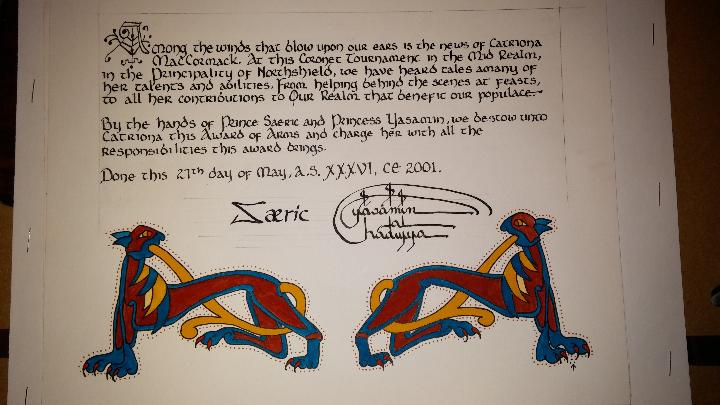 Among the winds that blow upon our ears is the news of Catriona
MacCormack. At this Coronet Tournament in the Mid Realm,
in the Principality of Northshield, we have heard tales amany of
her talents and abilities. From helping behind the scenes at feasts,
to all her contributions to Our Realm that benefit our populace.~
By the hands of Prince Saeric and Princess Yasamin, we bestow unto
Catriona this Award of Arms and charge her with all the
responsibilities this award brings.
Done this 27th day of May, A.S. XXXVI, CE 2001.
Særic
Yasamin
al
Hadiyya